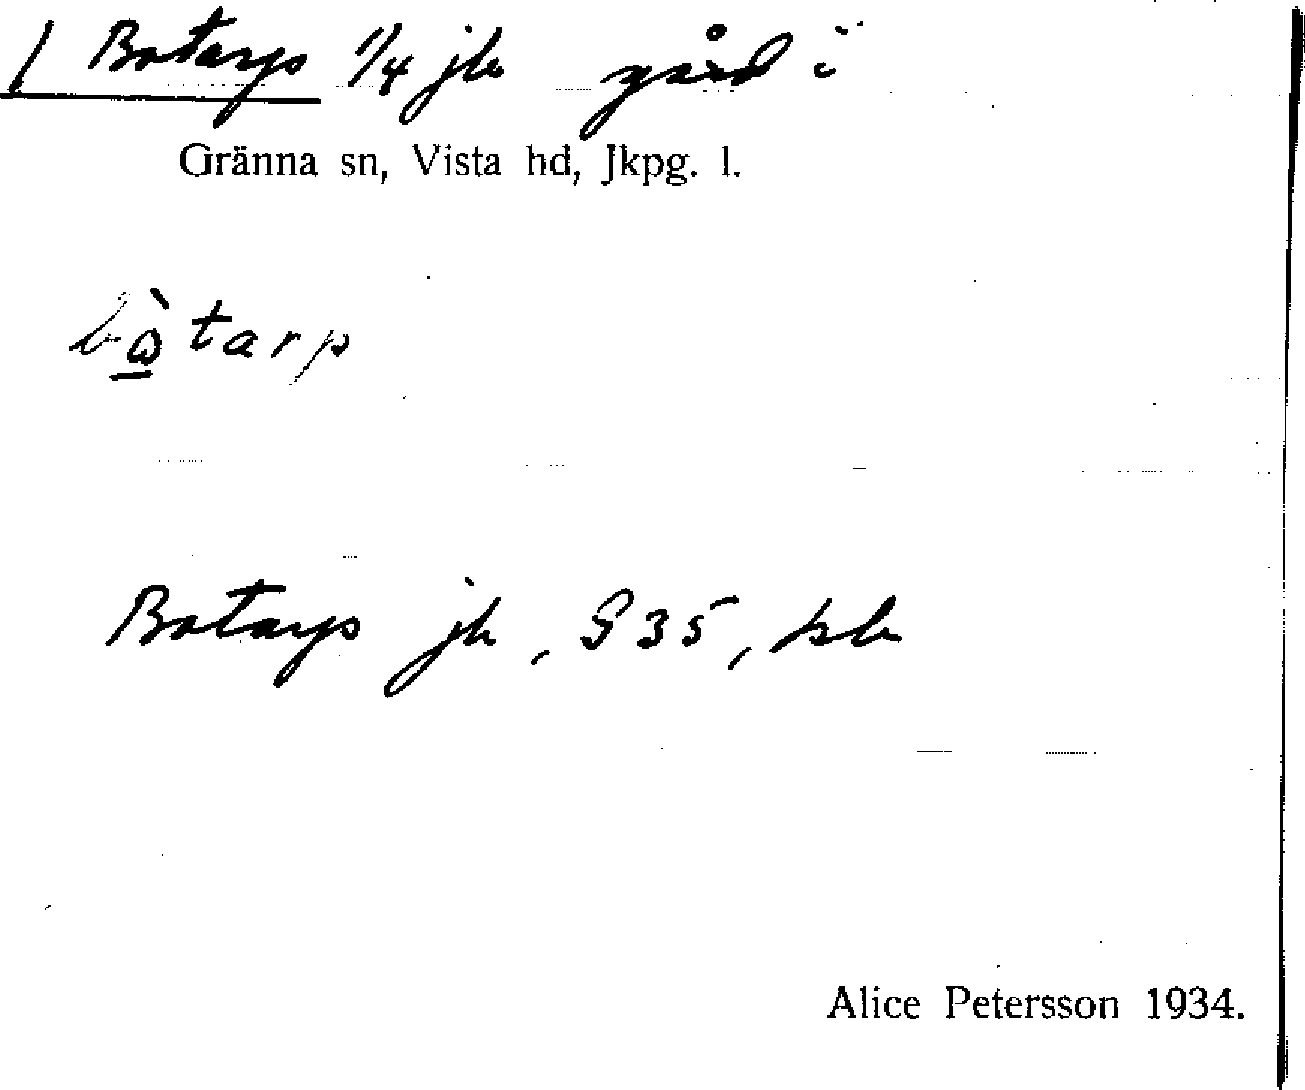 / Botarp 1/4 jb gård i
Gränna sn, Vista hd, Jkpg. l.
bὼ̱tarp
Botarp jb, G 35, kb
Alice Petersson 1934.